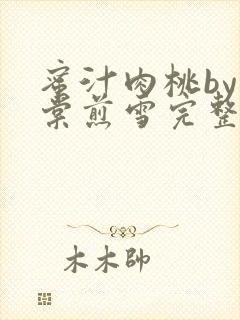 蜜汁肉桃by
棠煎雪完整
木木帥